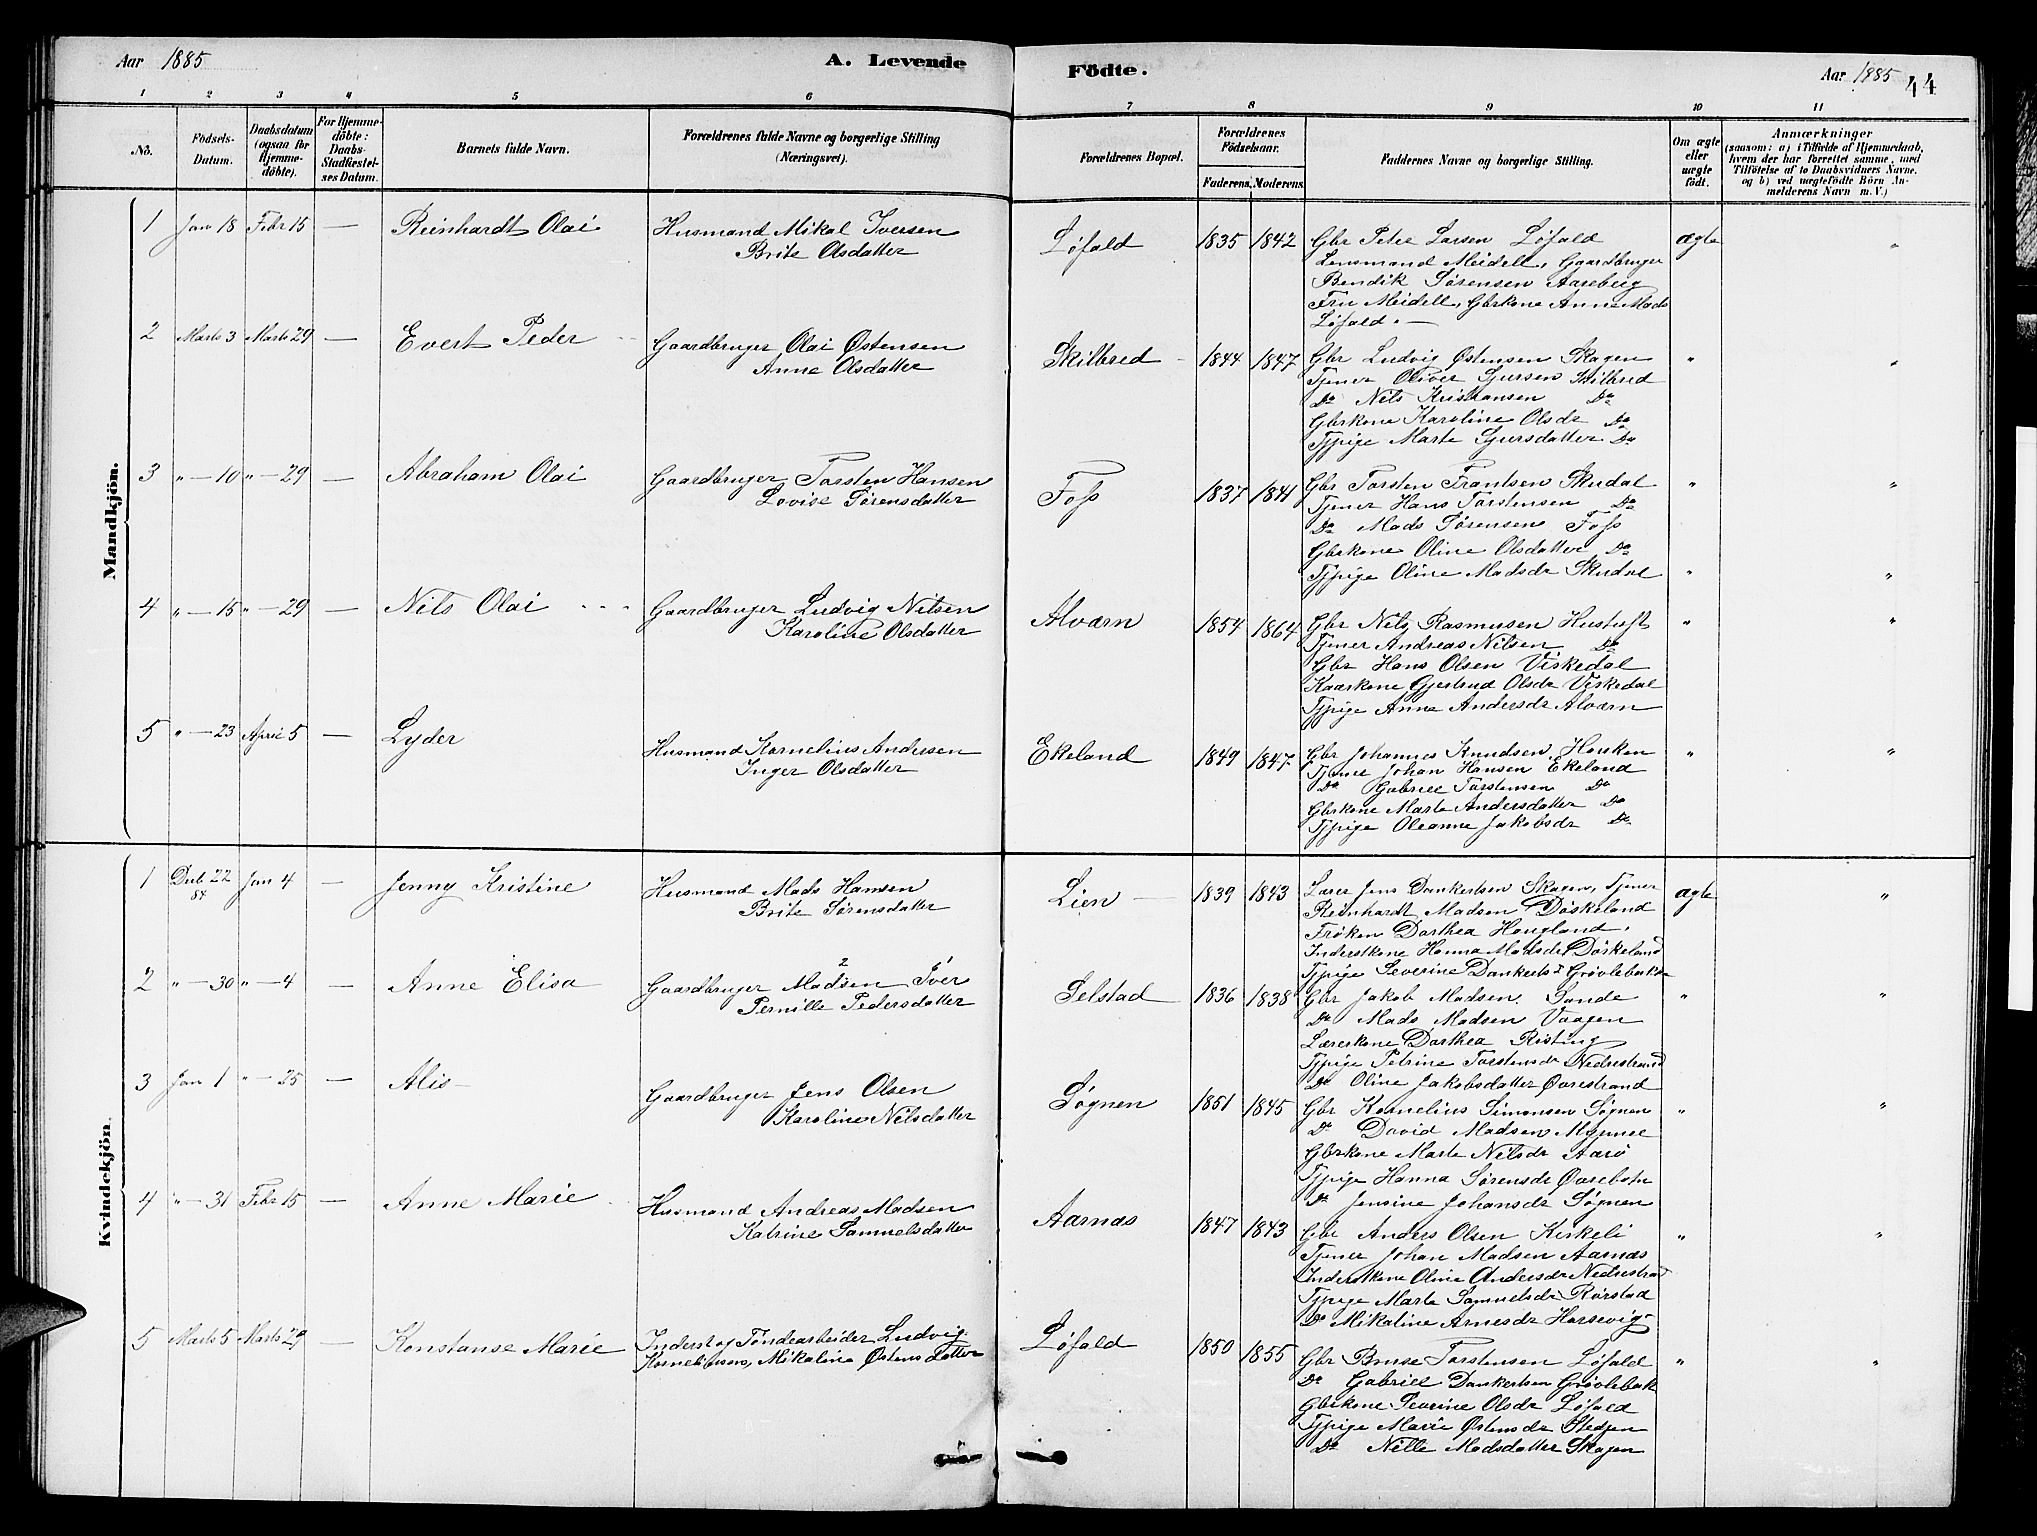 Aar 1885
A. Levende
Födte.
Aar 1885
44
1 2 3 4 5 6 7 8 9 10 11
No.
Födsels-
Datum.
Daabsdatum
(ogsaa for
Hjemme-
döbte).
For Hjemme-
döbte:
Daabs-
Stadfæstel-
ses Datum.
Barnets fulde Navn.
Forældrenes fulde Navne og borgerlige Stilling
(Næringsvei).
Forældrenes Bopæl.
Forældrenes
Födselsaar.
Faderens. Moderens.
Faddernes Navne og borgerlige Stilling.
Om ægte
eller
uægte
födt.
Anmærkninger
(saasom: a) i Tilfælde af Hjemmedaab,
hvem der har forrettet samme, med
Tilföielse af to Daabsvidners Navne.
og b) ved uægtefödte Börn An-
melderens Navn m. V.)
Mandkjön.
1 Jan 18 Febr 15 — Reinhardt Olai
Husmand Mikal Iversen
Brite Olsdatter
Løfald 1835 1842
Gbr Peter Larsen Løfald
Lensmand Meidell, Gaardbruger
Bendik Sørensen Aaseberg
Fru Meidell, Gbrkone Anne Mads
Løfald. —
ægte "
2 Marts 3 Marts 29 — Evert Peder
Gaardbruger Olai Østensen
Anne Olsdatter
Skilbred 1844 1847
Gbr Ludvig Østensen Skagen
Tjener Oliver Sjursen Skilbred
Do Nils Kristiansen Do
Gbrkone Karoline Olsdr Do
Tjpige Marte Sjursdatter Do
" "
3 " — 10 " — 29 — Abraham Olai
Gaardbruger Torsten Hansen
Lovise Sørensdatter
Foss 1837 1841
Gbr Torsten Frantsen Skudal
Tjener Hans Torstensen Do
Do Mads Sørensen Foss
Gbrkone Oline Olsdatter Do
Tjpige Oline Madsdr Skudal
" "
4 " — 15 " — 29 — Nils Olai
Gaardbruger Ludvig Nilsen
Karoline Olsdatter
Alværn 1854 1864
Gbr Nils Rasmussen Hustuft
Tjener Andreas Nilsen Do
Gbr Hans Olsen Viskedal
Kaarkone Gjertrud Olsdr Viskedal
Tjpige Anne Andersdr Alværn
" "
5 " — 23 April 5 — Lyder
Husmand Kornelius Andersen
Inger Olsdatter
Ekeland 1849 1847
Gbr Johannes Knudsen Hosken
Tjener Johan Hansen Ekeland
Do Gabriel Torstensen Do
Gbrkone Marte Andersdatter Do
Tjpige Oleanne Jakobsdr Do
" "
Kvindekjön.
1 Decb 22 Jan 4 — Jenny Kristine
84
Husmand Mads Hansen
Brite Sørensdatter
Lien — 1839 1843
Lærer Jens Dankertsen Skagen, Tjener
Reinhardt Madsen Døskeland
Frøken Dorthea Hougland,
Inderstkone Hanna Madsdr Døskeland
Tjpige Severine Dankertsdr Grøvlebak
ægte "
2 " — 30 " — 4 Anne Elisa
2 1
Gaardbruger Madsen Iver
Pernille Pedersdatter
Selstad 1836 1838
Gbr Jakob Madsen Sande
Do Mads Madsen Vaagen
Lærerkone Dorthea Risting
Tjpige Petrine Torstensdr Nedrestrand
Do Oline Jakobsdatter Øvrestrand
" "
3 Jan 1 " — 25 — Alis —
Gaardbruger Jens Olsen
Karoline Nilsdatter
Søgnen 1851 1845
Gbr Kornelius Simonsen Søgnen
Do David Madsen
Gbrkone Marte Nilsdr Aarø
Tjpige Hanna Sørensdr Øvrebotn
Do Jensine Johansdr Søgnen
" "
4 " — 31 Febr 15 — Anne Marie
Husmand Andreas Madsen
Katrine Samuelsdatter
Aarnas 1847 1843
Gbr Anders Olsen Kirkeli
Tjener Johan Madsen Aarnas
Inderstkone Oline Andersdr Nedrestrad
Tjpige Marte Samuelsdr Rørstad
Do Mikaline Arnesdr Horsevig
" "
5 Marts 5 Marts 29 — Konstanse Marie
Inderst og Tøndearbeider Ludvig
Korneliussen, Mikaline Østensdatter
Løfald 1850 1855
Gbr Bruse Torstensen Løfald
Do Gabriel Dankertsen Grøvlebak
Gbrkone Severine Olsdr Løfald
Tjpige Marie Østensdr Stedjen
Do Nille Madsdatter Skagen
" "